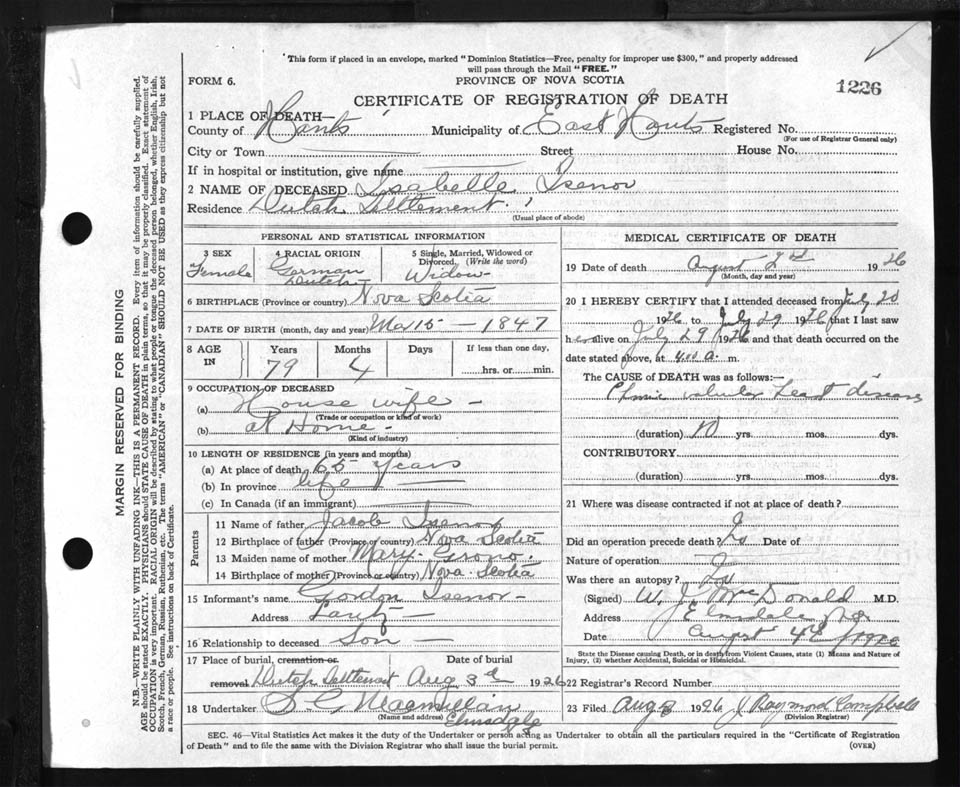 This form if placed in an envelope, marked "Dominion Statistics—Free, penalty for improper use $300," and properly addressed
will pass through the Mail "FREE."
FORM 6.
PROVINCE OF NOVA SCOTIA
1226
CERTIFICATE OF REGISTRATION OF DEATH
1 PLACE OF DEATH—
County of Hants Municipality of East Hants Registered No.
(For use of Registrar General only)
City or Town Street House No.
If in hospital or institution, give name
2 NAME OF DECEASED Isabelle Isenor
Residence Dutch Settlement.
(Usual place of abode)
PERSONAL AND STATISTICAL INFORMATION
3 SEX 4 RACIAL ORIGIN 5 Single, Married, Widowed or Divorced. (Write the word)
Female German Dutch Widow
6 BIRTHPLACE (Province or country) Nova Scotia
7 DATE OF BIRTH (month, day and year) Mar 15 — 1847
8 AGE IN Years Months Days If less than one day,
79 4 hrs. or min.
9 OCCUPATION OF DECEASED
(a) House wife
(Trade or occupation or kind of work)
(b) at Home
(Kind of industry)
10 LENGTH OF RESIDENCE (in years and months)
(a) At place of death 65 years
(b) In province life
(c) In Canada (if an immigrant)
Parents
11 Name of father Jacob Isenor
12 Birthplace of father (Province or country) Nova Scotia
13 Maiden name of mother Mary Grono.
14 Birthplace of mother (Province or country) Nova Scotia
15 Informant's name Gordon Isenor
Address Lantz
16 Relationship to deceased Son
17 Place of burial, cremation or Date of burial
removal Dutch Settlement Aug 3d 1926
18 Undertaker Macmillan
(Name and address) Elmsdale
MEDICAL CERTIFICATE OF DEATH
19 Date of death August 2nd 1926
(Month, day and year)
20 I HEREBY CERTIFY that I attended deceased from July 20
1926 to July 29 1926 that I last saw
her alive on July 29 1926 and that death occurred on the
date stated above, at 4:00 a. m.
The CAUSE OF DEATH was as follows:—
Chronic valvular heart disease
(duration) 10 yrs. mos. dys.
CONTRIBUTORY
(duration) yrs. mos. dys.
21 Where was disease contracted if not at place of death?
Did an operation precede death? No Date of
Nature of operation
Was there an autopsy? No
(Signed) W. J. McDonald M.D.
Address Elmsdale N.S.
Date August 4th 1926
State the Disease causing Death, or in death from Violent Causes, state (1) Means and Nature of
Injury, (2) whether Accidental, Suicidal or Homicidal.
22 Registrar's Record Number
23 Filed Aug 1926 J Raymond Campbell
(Division Registrar)
SEC. 46—Vital Statistics Act makes it the duty of the Undertaker or person acting as Undertaker to obtain all the particulars required in the "Certificate of Registration
of Death" and to file the same with the Division Registrar who shall issue the burial permit.
(OVER)
MARGIN RESERVED FOR BINDING
N.B.—WRITE PLAINLY WITH UNFADING INK—THIS IS A PERMANENT RECORD. Every item of information should be carefully supplied.
AGE should be stated EXACTLY. PHYSICIANS should STATE CAUSE OF DEATH in plain terms, so that it may be properly classified. Exact statement of
OCCUPATION is very important. RACIAL ORIGIN will be described by stating to what people or tongue the deceased person belonged, whether English, Irish,
Scotch, French, German, Russian, Ruthenian, etc. The terms "AMERICAN" or "CANADIAN" SHOULD NOT BE USED as they express citizenship but not
a race or people. See instructions on back of Certificate.